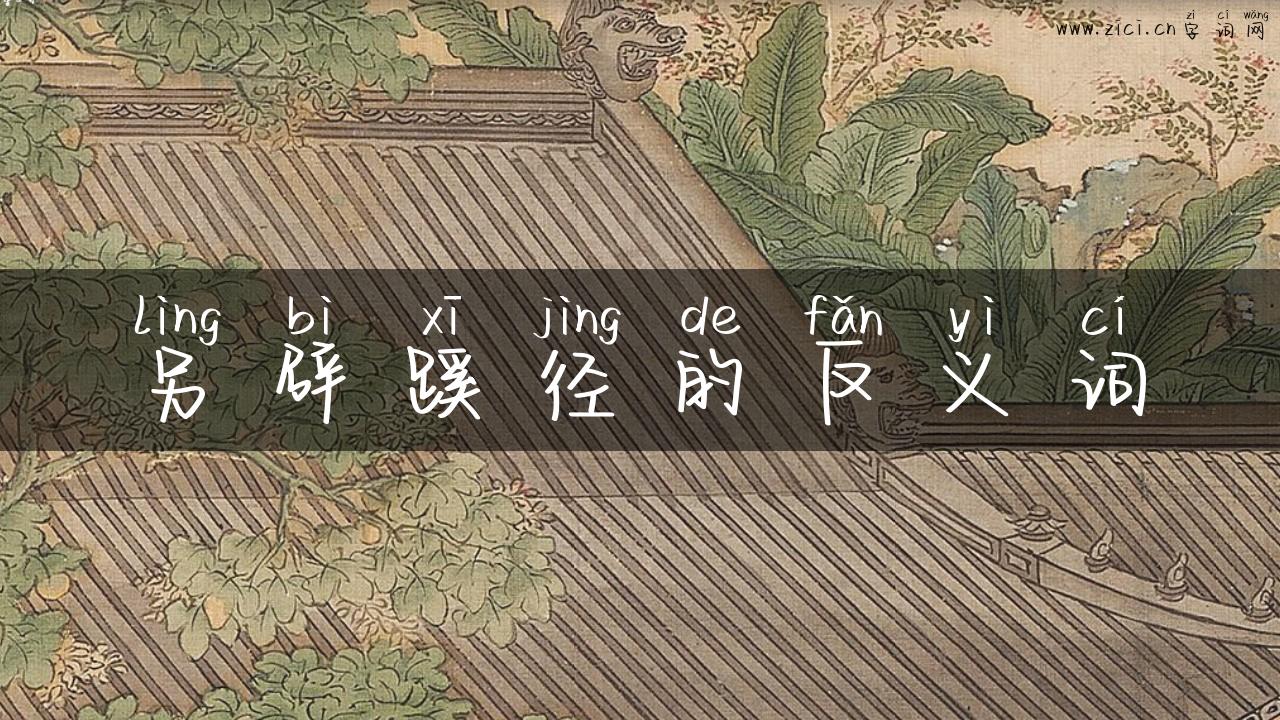 zì cí wǎng
www.zici.cn 字词网
lìng bì xī jìng de fǎn yì cí
另辟蹊径的反义词